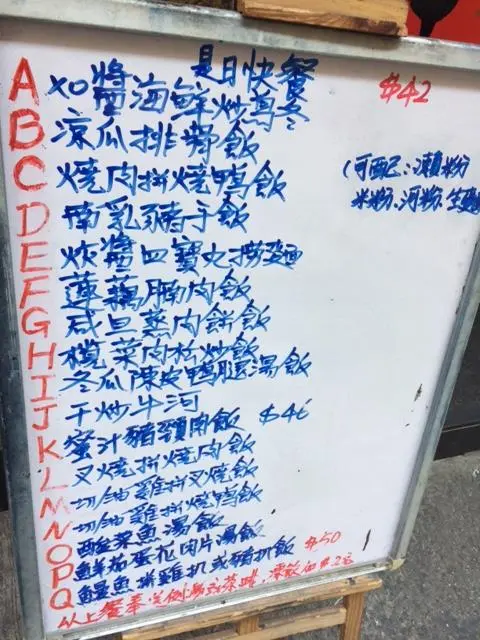 是日快餐
A XO醬海鮮炒烏冬 $42
B 涼瓜排骨飯
C 燒肉拼燒鴨飯
(可配:瀨粉
米粉.河粉.生麵
D 南乳豬手飯
E 炸醬四寶丸撈麵
F 蓮藕腩肉飯
G 咸旦蒸肉餅飯
H 欖菜肉松炒飯
I 冬瓜陳皮鴨腿湯飯
J 干炒牛河
K 蜜汁豬頸肉飯 $46
L 叉燒拼燒肉飯
M 切油雞拼叉燒飯
N 切油雞拼燒鴨飯
O 酸菜魚湯飯
P 鮮茄蛋花肉片湯飯
Q 鰻魚拼雞扒或豬扒飯 $50
以上餐奉送例湯或茶啡,凍飲加$2